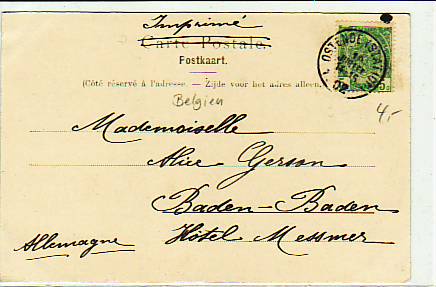 Imprimé
Carte Postale.
Postkaart.
(Côté réservé à l'adresse. — Zijde voor het adres alleen.)
Belgien
4,-
Mademoiselle
Alice Gerson
Baden-Baden
Hôtel Messmer
Allemagne
OSTENDE (STATION)
02